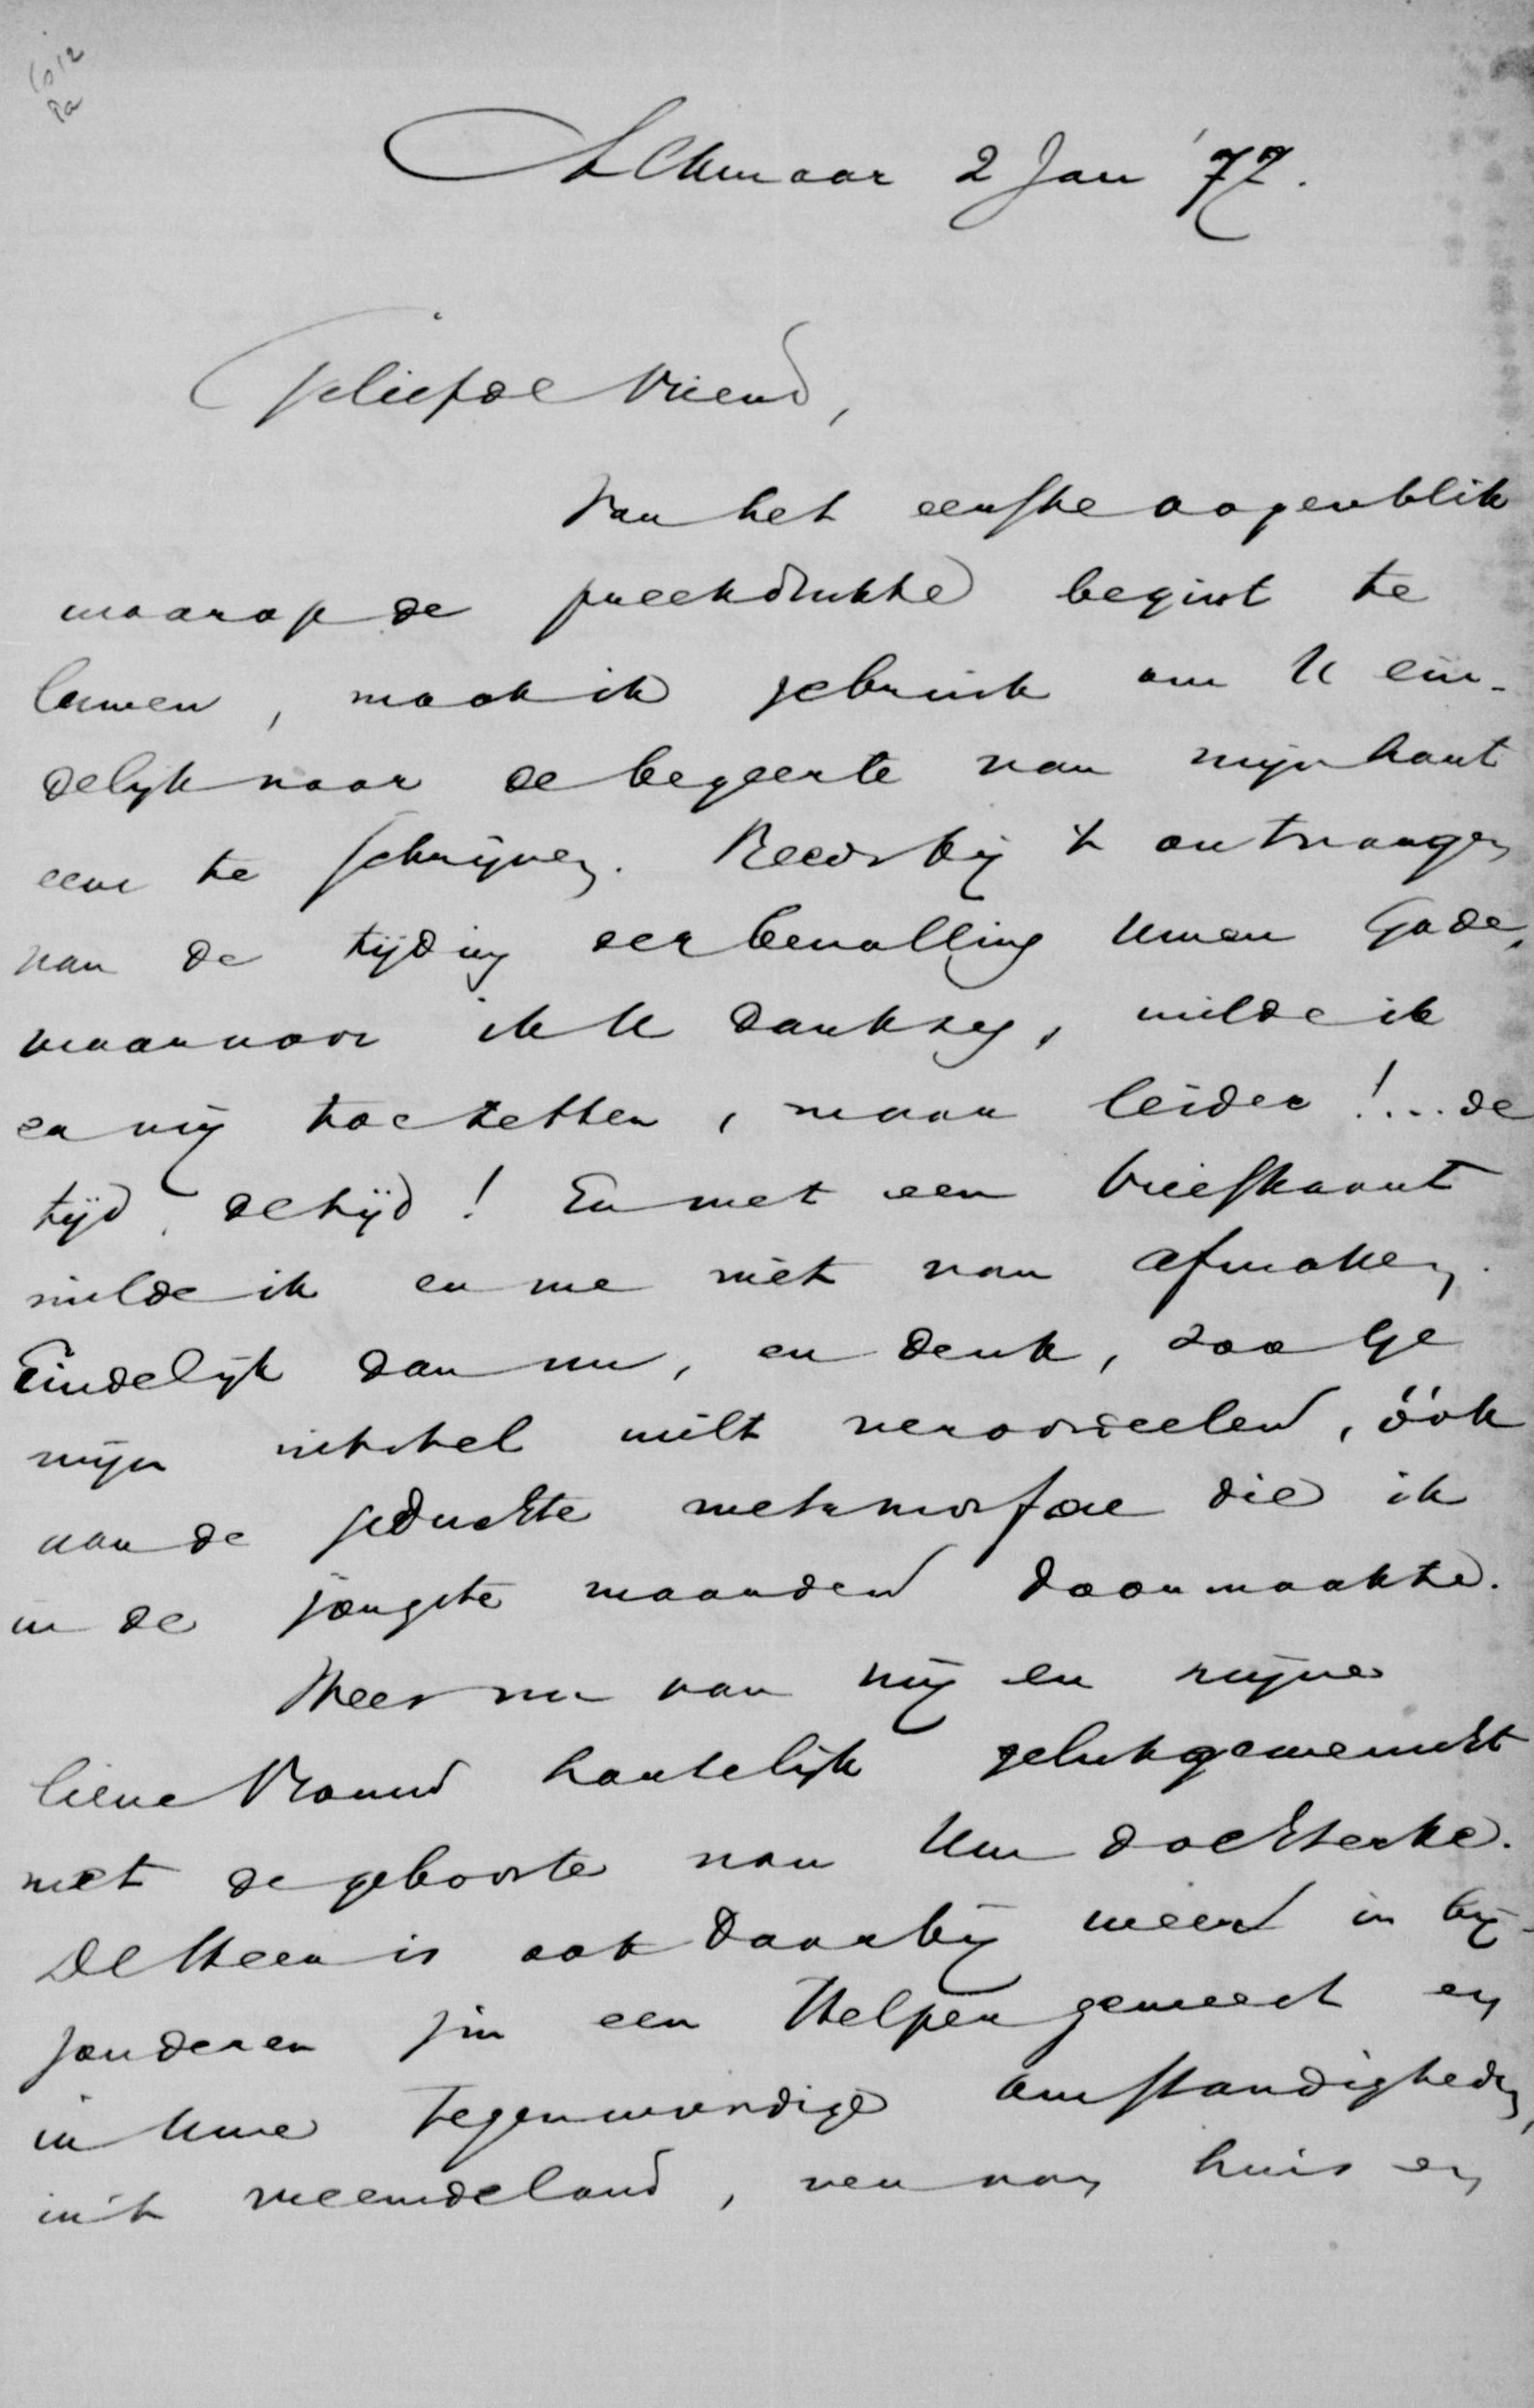 Alkmaar 2 Jan '77.
Geliefde Vriend,
Van het eerste oogenblik
waarop de preekdrukte begint te
luwen, maak ik gebruik om U ein-
delijk naar de begeerte van mijn hart
eens te schrijven. Reeds bij 't ontvangen
van de tijding der bevalling Uwer Gade,
waarvoor ik U dank zeg, wilde ik
er mij toe zetten, maar leider!... de
tijd, de tijd! En met een briefkaart
wilde ik er me niet van afmaken.
Eindelijk dan nu, en denk, zoo Ge
mijn uitstel wilt veroordeelen, óók
aan de geduchte metamorfose die ik
in de jongste maanden doormaakte.
Wees nu van mij en mijne
lieve Vrouw hartelijk gelukgewenscht
met de geboorte van Uw dochterke.
De Heer is ook daarbij weer in bij-
zonderen zin een Helper geweest en
in Uwe tegenwoordige omstandigheden,
in 't vreemde land, ver van huis en